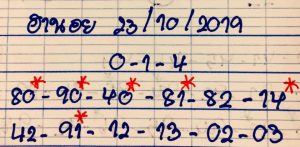 ฮานอย 23/10/2019
0-1-4
80*-90*-40*-81*-82-14*
42-91*-12-13-02-03